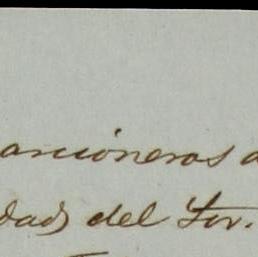 arcioneros a
dad del Sor.